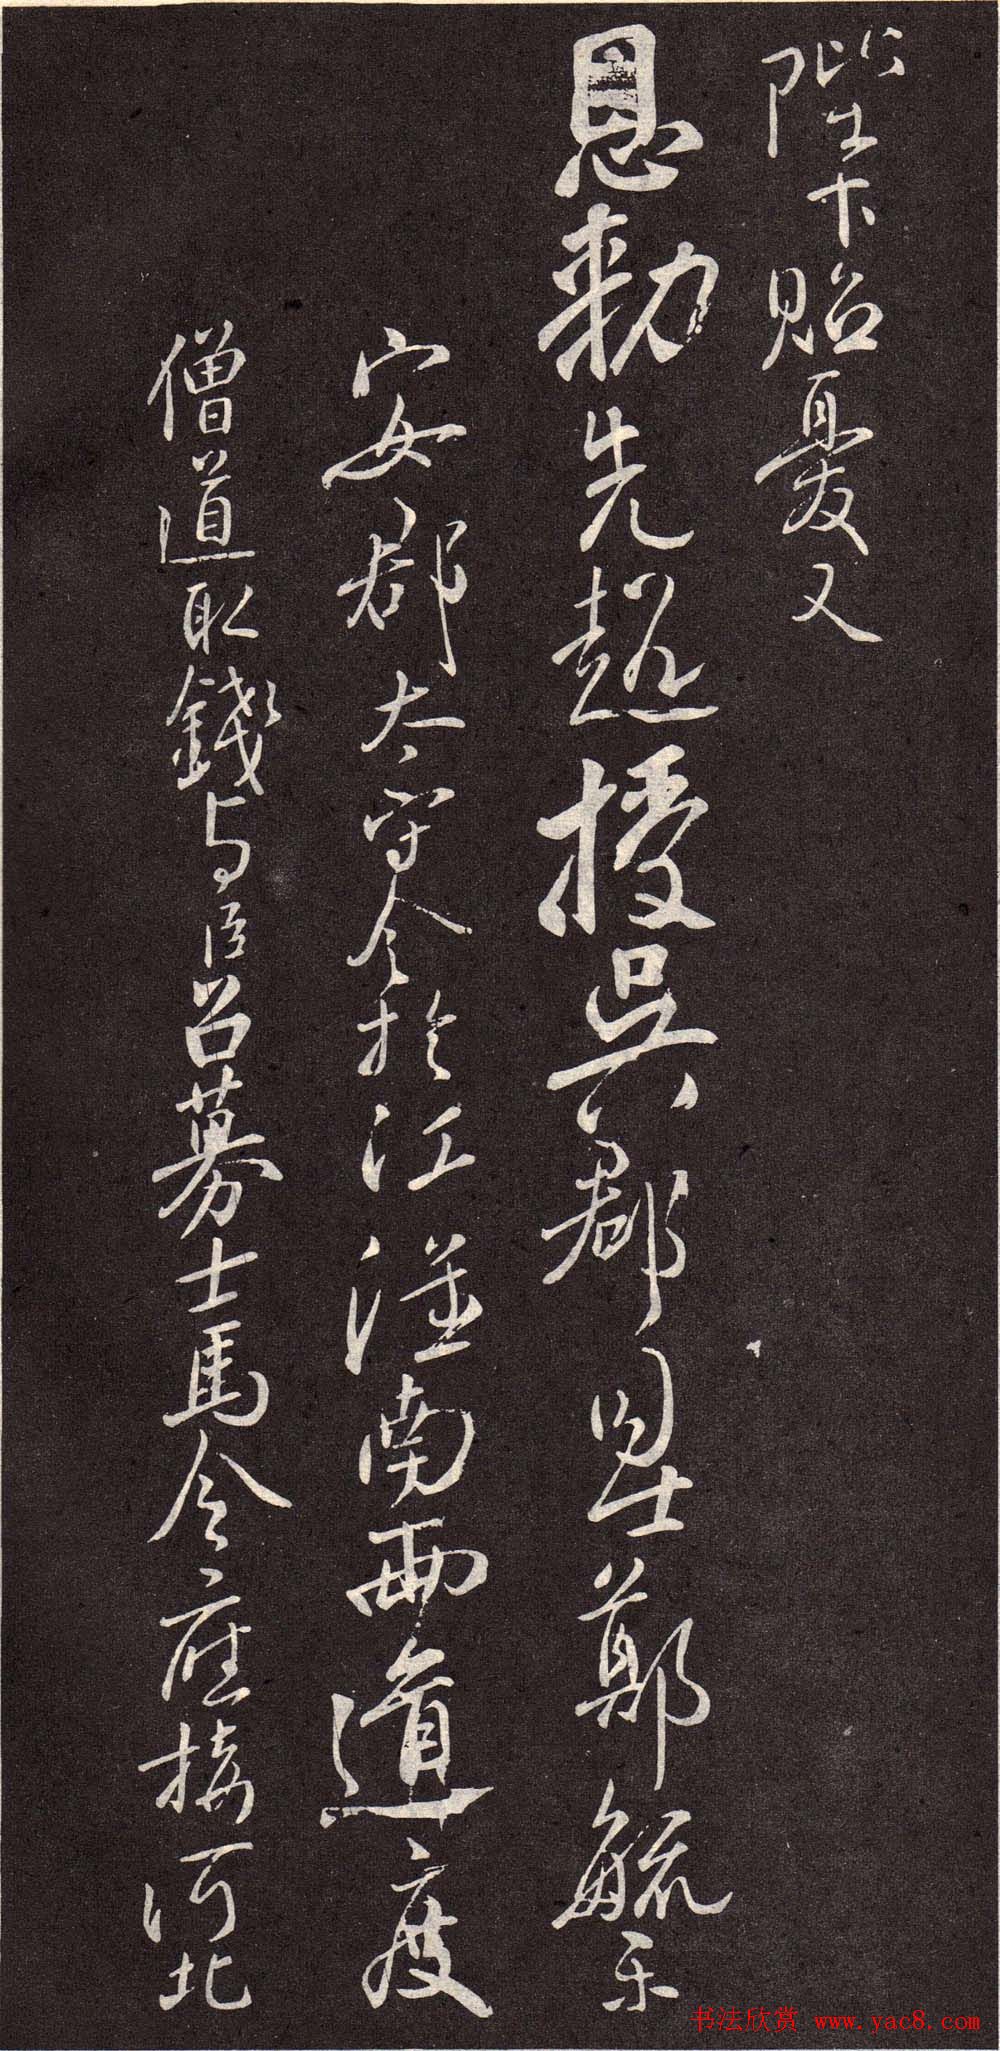 陛下貽憂又
恩勅先超授吳郡司士鄭毓樂
安郡太守令於江淮南兩道度
僧道取錢与臣召募士馬令應接河北
书法欣赏 www.yac8.com